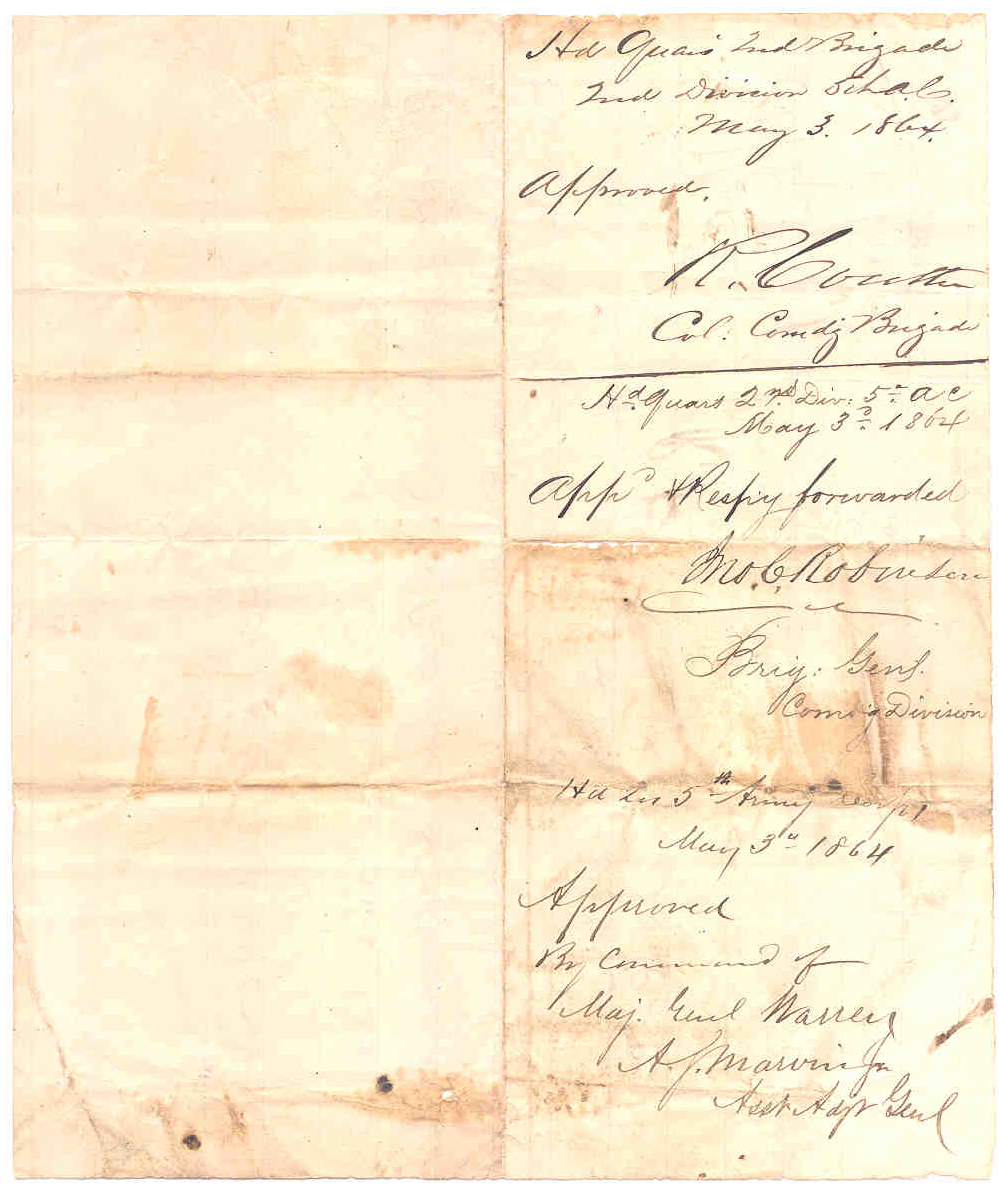 Hd Quars 2nd Brigade
2nd Division 5th A.C.
May 3. 1864.
Approved.
R. Coulter
Col: Comdg Brigade
Hd. Quars 2nd Div: 5th A C
May 3d. 1864
Appd & Respy forwarded
Jno. C Robinson
Brig: Genl.
Comd'g Division
Hd Qrs 5th Army Corps
May 3d 1864
Approved
By Command of
Maj. Genl Warren
A.S. Marvin Jr
Asst Adjt Genl